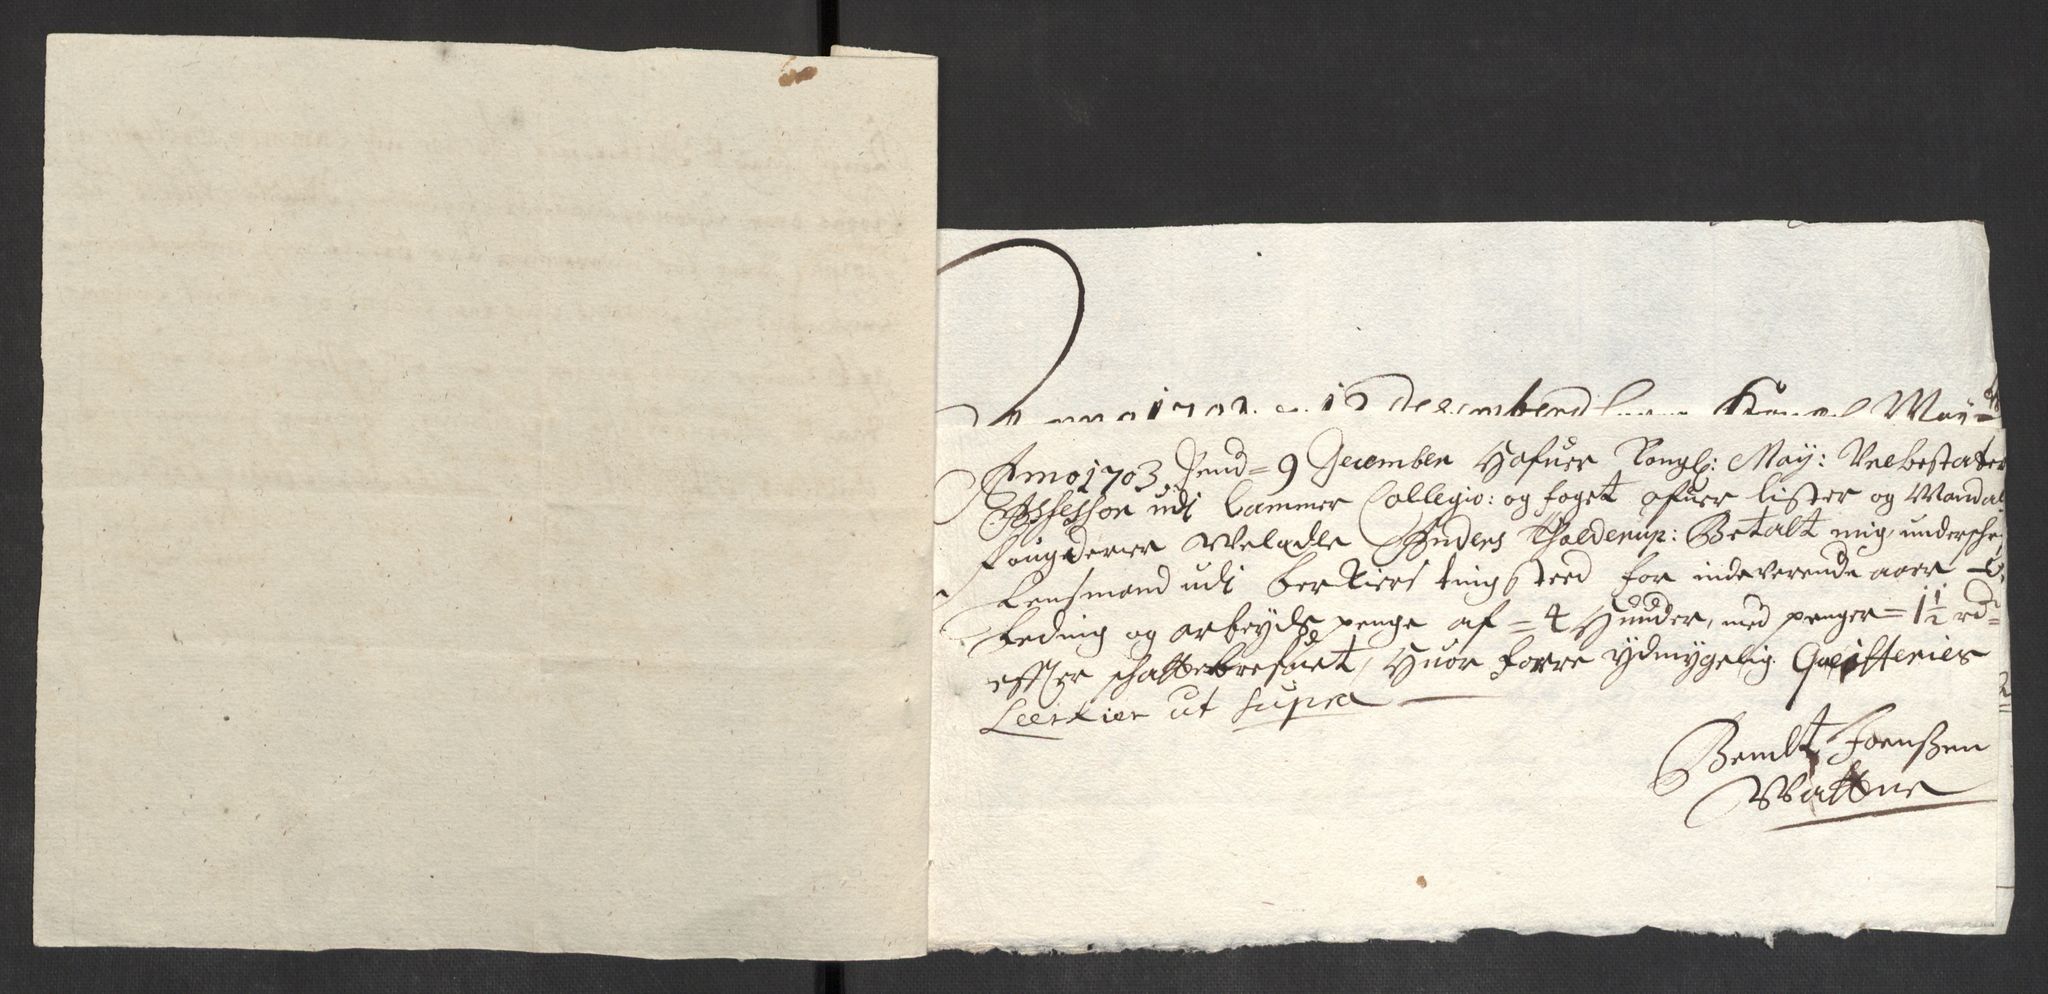 Anno 1703 d 12 decembend Kongl May
Anno 1703 Dend = 9 December Hafuer Kongl: May: Velbestalter
Assessor udi Cammer Collegio: og foget ofuer lister og Mandals
fougderier Weledle Anders Tholderup: Betalt mig undersch
Lensmand udi berkiers tingsteed for indeverende aaer
Leding og arbeyds penge af = 4 Hunder, med penger = 1 1/2 rd =
effter schattebrefuet, Huor forre ydmygelig Quitterier
Leerkier ut supra
Berndt Joenßen
Wattne